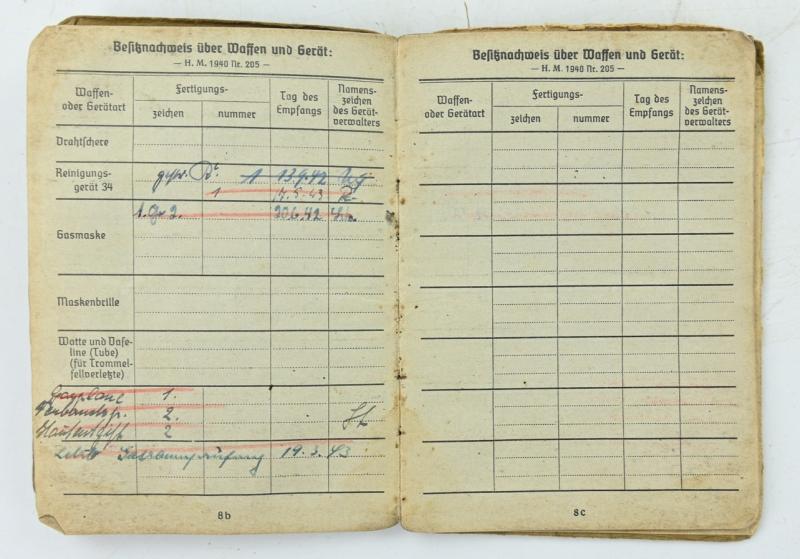 Besitznachweis über Waffen und Gerät:
— H. M. 1940 Nr. 205 —
Waffen- oder Gerätart
Fertigungs-
zeichen
nummer
Tag des Empfangs
Namens-zeichen des Gerät-verwalters
Drahtschere
Reinigungs-
gerät 34
1 13.9.42
1 17.5.43
Gasmaske
20.6.42
Maskenbrille
Watte und Vase-
line (Tube)
(für Trommel-
fellverletzte)
Gasplane 1.
2.
2
19.3.43
8b
Besitznachweis über Waffen und Gerät:
— H. M. 1940 Nr. 205 —
Waffen- oder Gerätart
Fertigungs-
zeichen
nummer
Tag des Empfangs
Namens-zeichen des Gerät-verwalters
8c